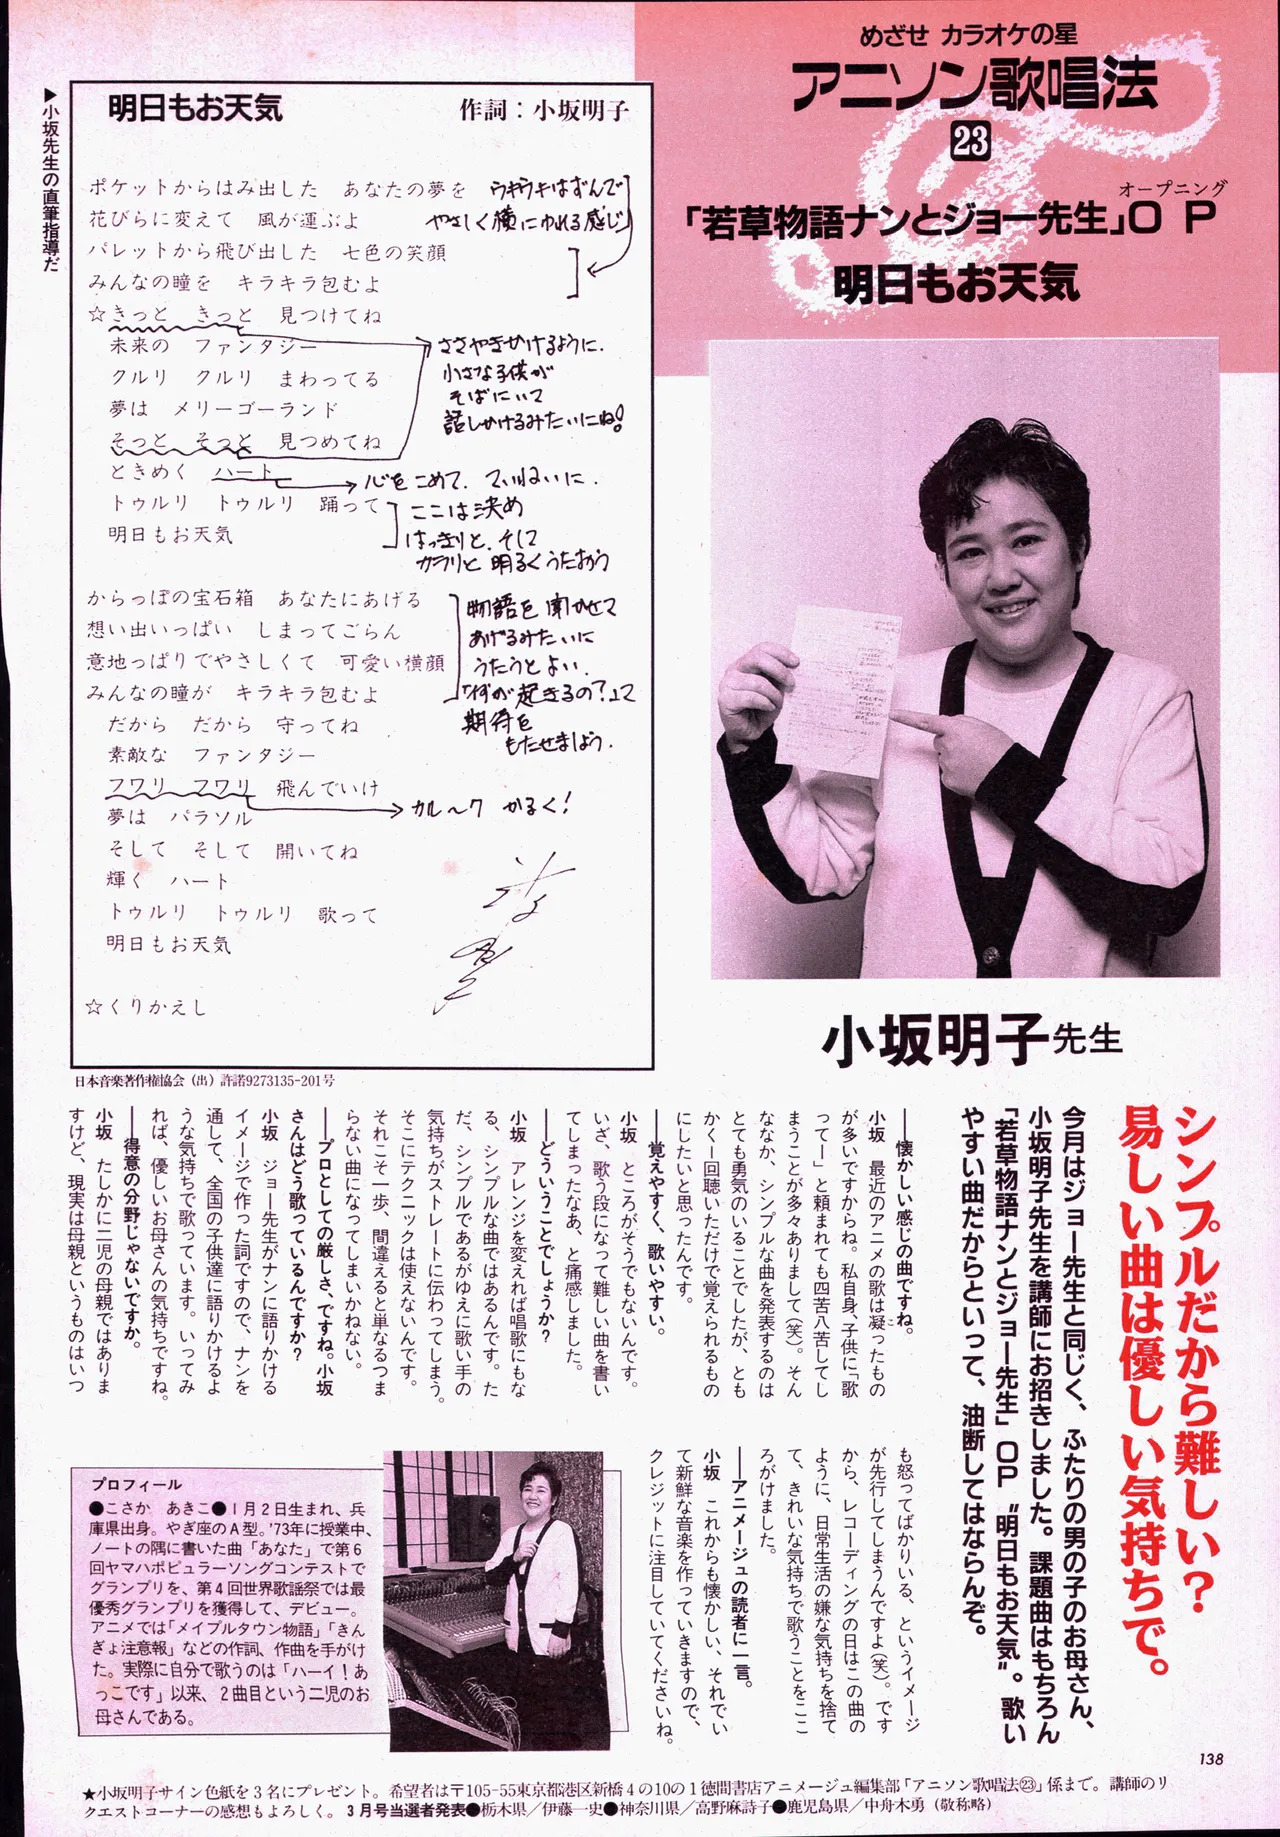 めざせ カラオケの星
アニソン歌唱法
23
オープニング
「若草物語ナンとジョー先生」OP
明日もお天気
▶小坂先生の直筆指導だ
明日もお天気 作詞：小坂明子
ポケットからはみ出した あなたの夢を
花びらに変えて 風が運ぶよ
パレットから飛び出した 七色の笑顔
みんなの瞳を キラキラ包むよ
☆きっと きっと 見つけてね
未来の ファンタジー
クルリ クルリ まわってる
夢は メリーゴーランド
そっと そっと 見つめてね
ときめく ハート
トゥルリ トゥルリ 踊って
明日もお天気
からっぽの宝石箱 あなたにあげる
想い出いっぱい しまってごらん
意地っぱりでやさしくて 可愛い横顔
みんなの瞳が キラキラ包むよ
だから だから 守ってね
素敵な ファンタジー
フワリ フワリ 飛んでいけ
夢は パラソル
そして そして 開いてね
輝く ハート
トゥルリ トゥルリ 歌って
明日もお天気
☆くりかえし
ウキウキはずんで
やさしく横にゆれる感じ
ささやきかけるように.
小さな子供が
そばにいて
話しかけるみたいにね!
心をこめて. ていねいに.
ここは決め
はっきりと. そして
カラリと 明るくうたおう
物語を聞かせて
あげるみたいに
うたうとよい.
「何が起きるの?」って
期待を
もたせましょう.
カル〜ク かるく!
日本音楽著作権協会（出）許諾9273135-201号
小坂明子先生
シンプルだから難しい？
易しい曲は優しい気持ちで。
今月はジョー先生と同じく、ふたりの男の子のお母さん、
小坂明子先生を講師にお招きしました。課題曲はもちろん
「若草物語ナンとジョー先生」OP〝明日もお天気〟。歌い
やすい曲だからといって、油断してはならんぞ。
──懐かしい感じの曲ですね。
小坂 最近のアニメの歌は凝ったもの
が多いですからね。私自身、子供に「歌
ってー」と頼まれても四苦八苦してし
まうことが多々ありまして（笑）。そん
ななか、シンプルな曲を発表するのは
とても勇気のいることでしたが、とも
かく一回聴いただけで覚えられるもの
にしたいと思ったんです。
──覚えやすく、歌いやすい。
小坂 ところがそうでもないんです。
いざ、歌う段になって難しい曲を書い
てしまったなあ、と痛感しました。
──どういうことでしょうか？
小坂 アレンジを変えれば唱歌にもな
る、シンプルな曲ではあるんです。た
だ、シンプルであるがゆえに歌い手の
気持ちがストレートに伝わってしまう。
そこにテクニックは使えないんです。
それこそ一歩、間違えると単なるつま
らない曲になってしまいかねない。
──プロとしての厳しさ、ですね。小坂
さんはどう歌っているんですか？
小坂 ジョー先生がナンに語りかける
イメージで作った詞ですので、ナンを
通して、全国の子供達に語りかけるよ
うな気持ちで歌っています。いってみ
れば、優しいお母さんの気持ちですね。
──得意の分野じゃないですか。
小坂 たしかに二児の母親ではありま
すけど、現実は母親というものはいつ
も怒ってばかりいる、というイメージ
が先行してしまうんですよ（笑）。です
から、レコーディングの日はこの曲の
ように、日常生活の嫌な気持ちを捨て
て、きれいな気持ちで歌うことをここ
ろがけました。
──アニメージュの読者に一言。
小坂 これからも懐かしい、それでい
て新鮮な音楽を作っていきますので、
クレジットに注目していてくださいね。
プロフィール
●こさか あきこ●1月2日生まれ、兵
庫県出身。やぎ座のA型。'73年に授業中、
ノートの隅に書いた曲「あなた」で第6
回ヤマハポピュラーソングコンテストで
グランプリを、第4回世界歌謡祭では最
優秀グランプリを獲得して、デビュー。
アニメでは「メイプルタウン物語」「きん
ぎょ注意報」などの作詞、作曲を手がけ
た。実際に自分で歌うのは「ハーイ！あ
っこです」以来、2曲目という二児のお
母さんである。
138
★小坂明子サイン色紙を3名にプレゼント。希望者は〒105-55東京都港区新橋4の10の1徳間書店アニメージュ編集部「アニソン歌唱法㉓」係まで。講師のリ
クエストコーナーの感想もよろしく。3月号当選者発表●栃木県／伊藤一史●神奈川県／高野麻詩子●鹿児島県／中舟木勇（敬称略）